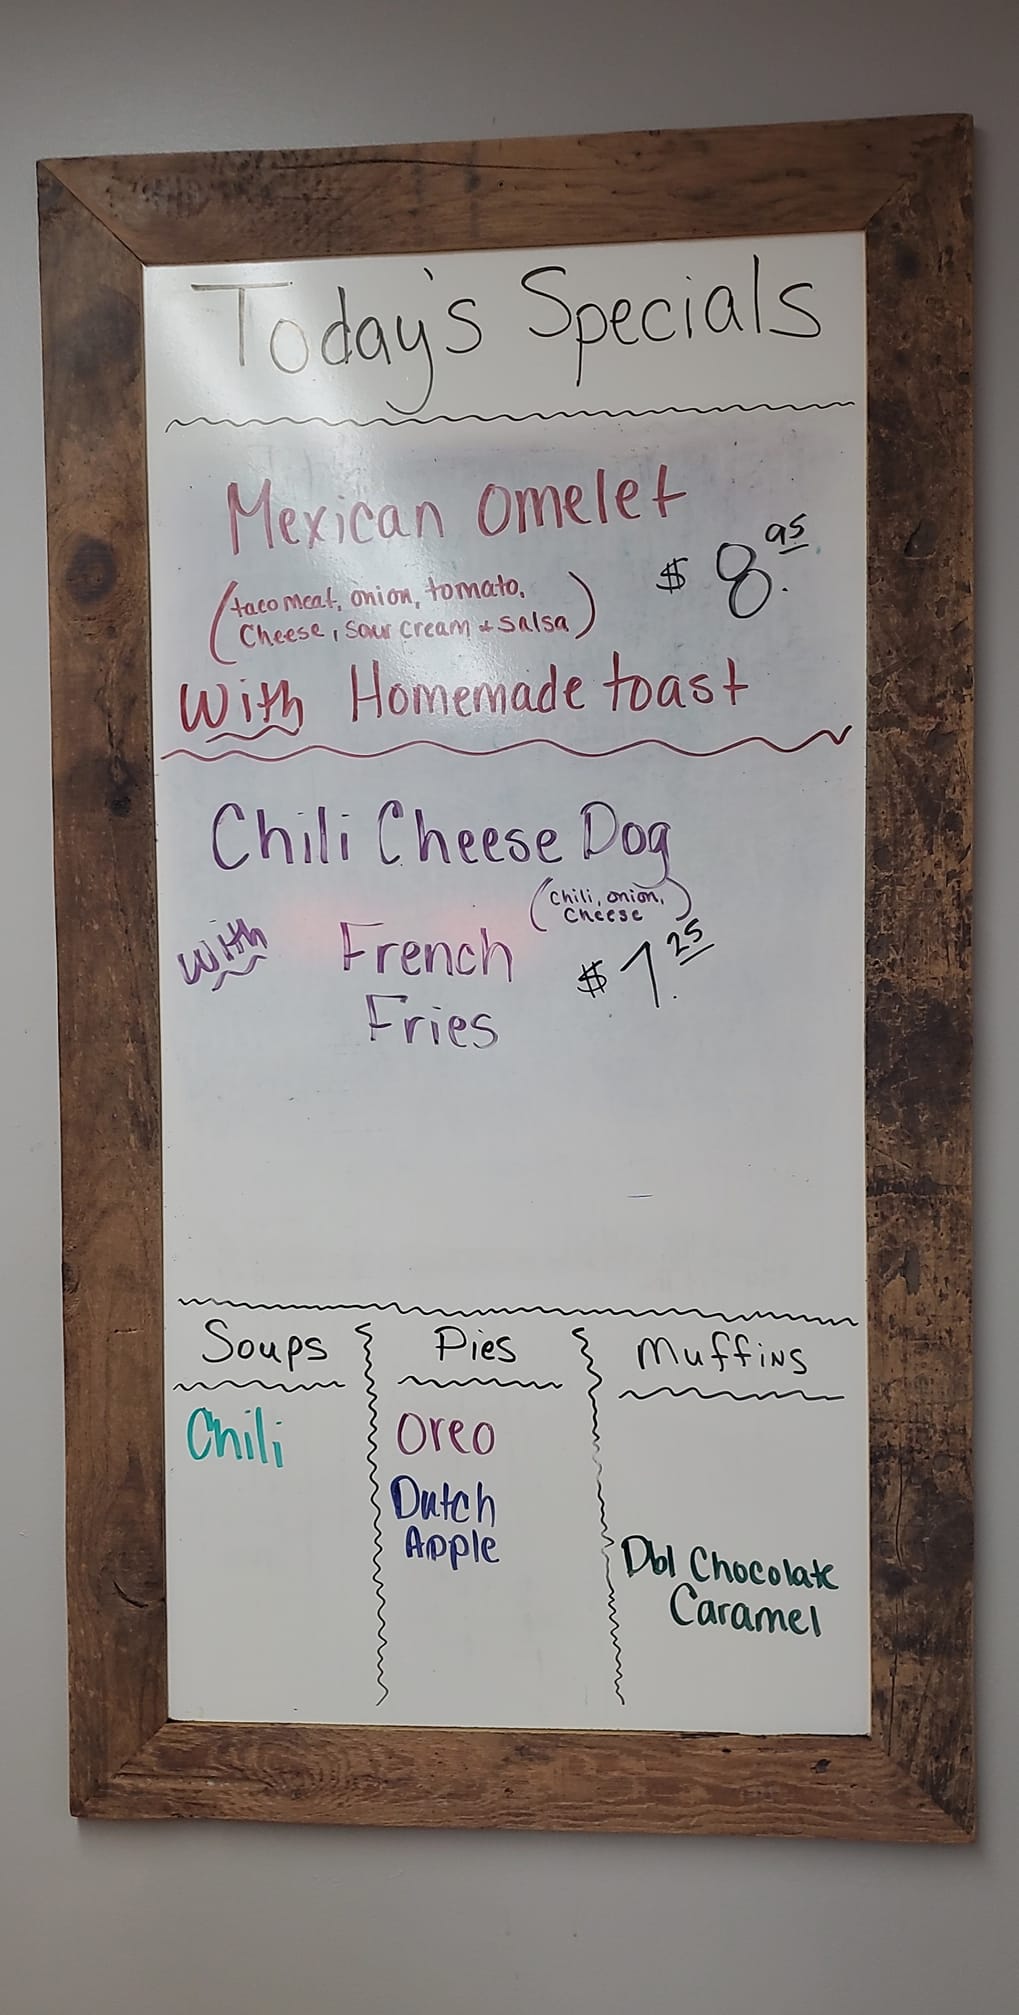 Today's Specials
Mexican Omelet
$ 8.95
(taco meat, onion, tomato,
Cheese, sour cream + salsa)
With Homemade toast
Chili Cheese Dog
(chili, onion,
cheese)
With French
Fries
$ 7.25
Soups
Chili
Pies
Oreo
Dutch
Apple
Muffins
Dbl Chocolate
Caramel